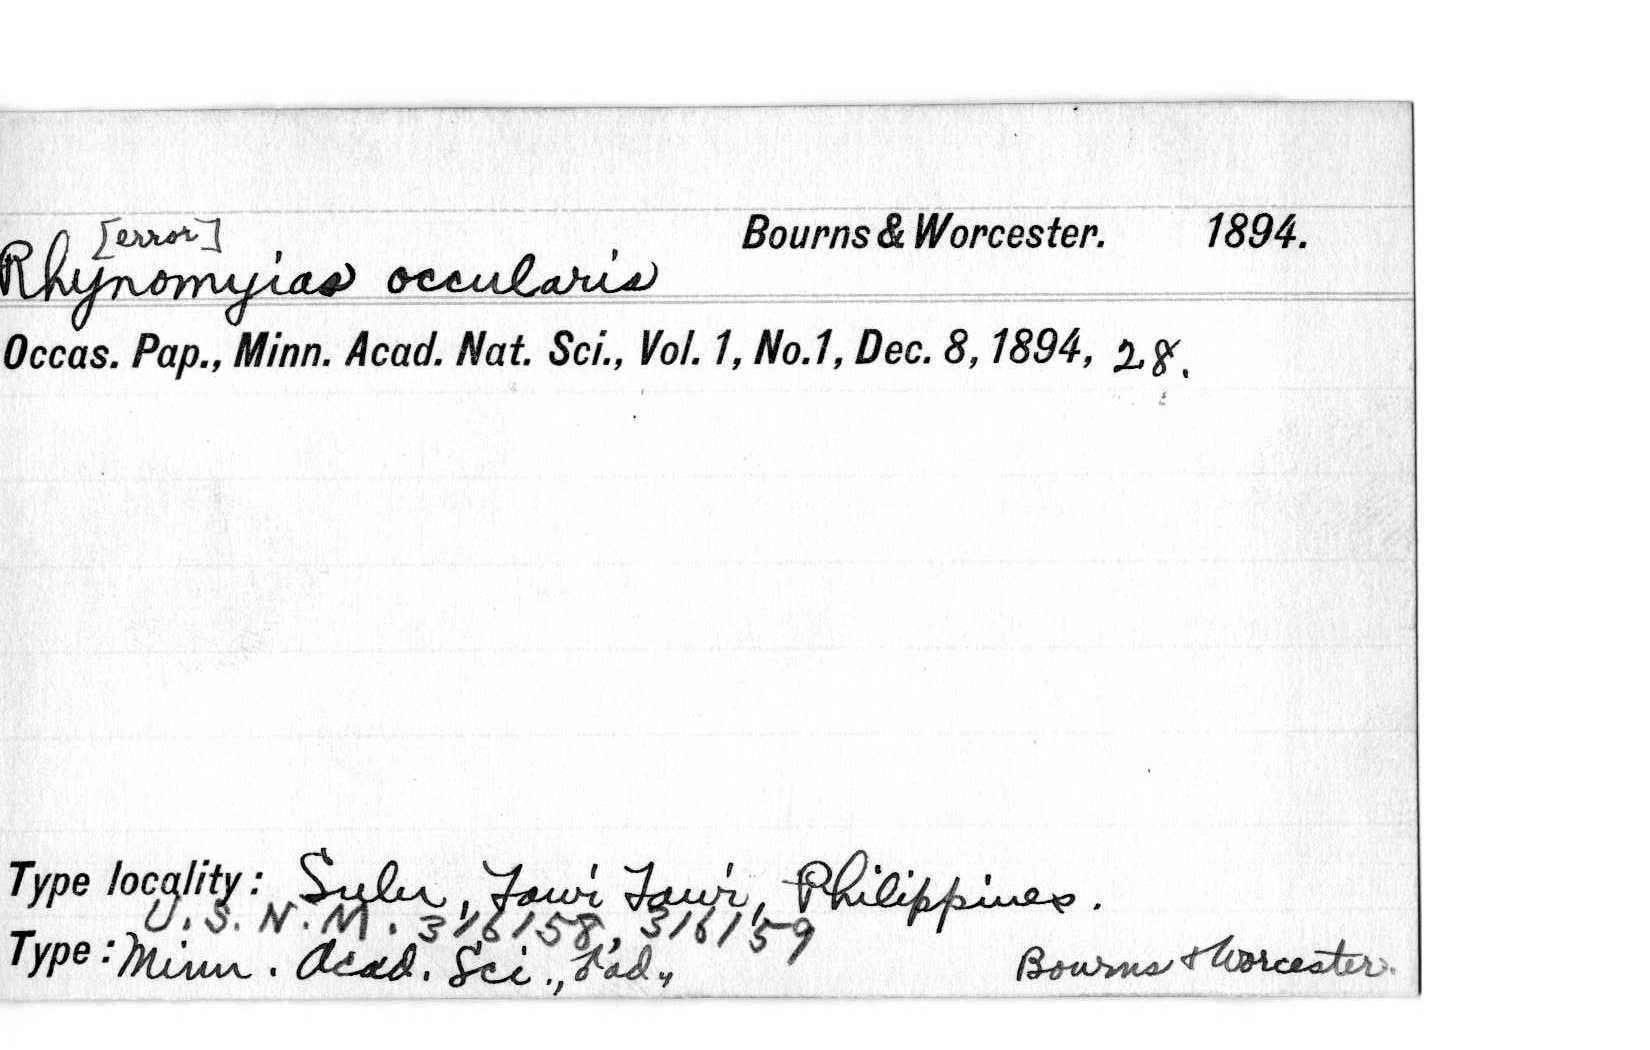 [error]
Rhynomyias occularis Bourns & Worcester. 1894.
Occas. Pap., Minn. Acad. Nat. Sci., Vol. 1, No.1, Dec. 8, 1894, 28.
Type locality: Sulu, Tawi Tawi, Philippines.
U.S.N.M. 316158, 316159
Type: Minn. Acad. Sci., Bourns & Worcester.